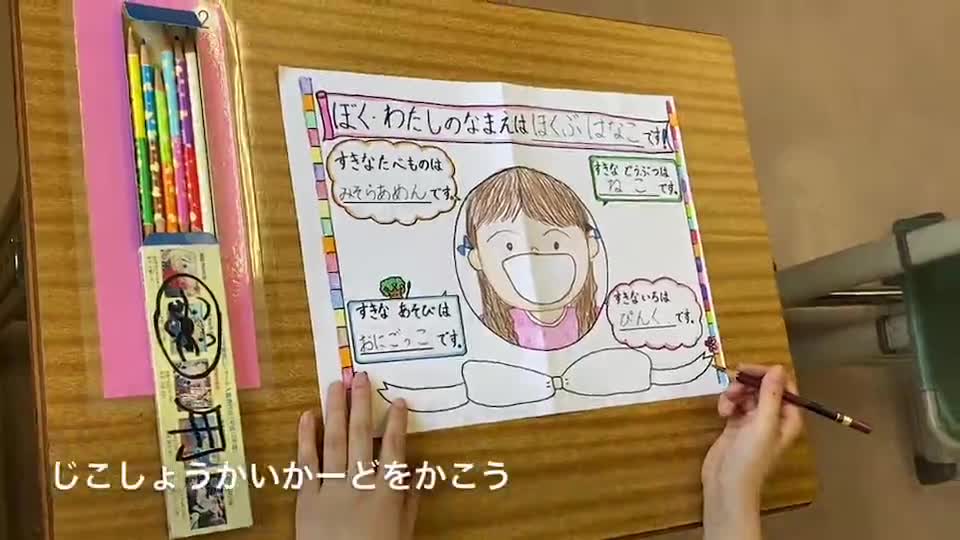 ぼく・わたしのなまえはほくぶはなこです
すきなたべものは
みそらあめんです。
すきな どうぶつは
ねこです。
すきな あそびは
おにごっこです。
すきないろは
ぴんくです。
じこしょうかいかーどをかこう
2
用